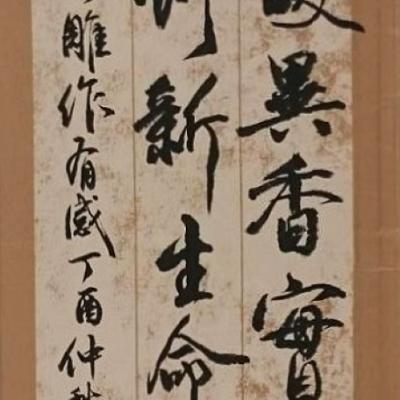 異香實
新生命
雕作有感丁酉仲秋